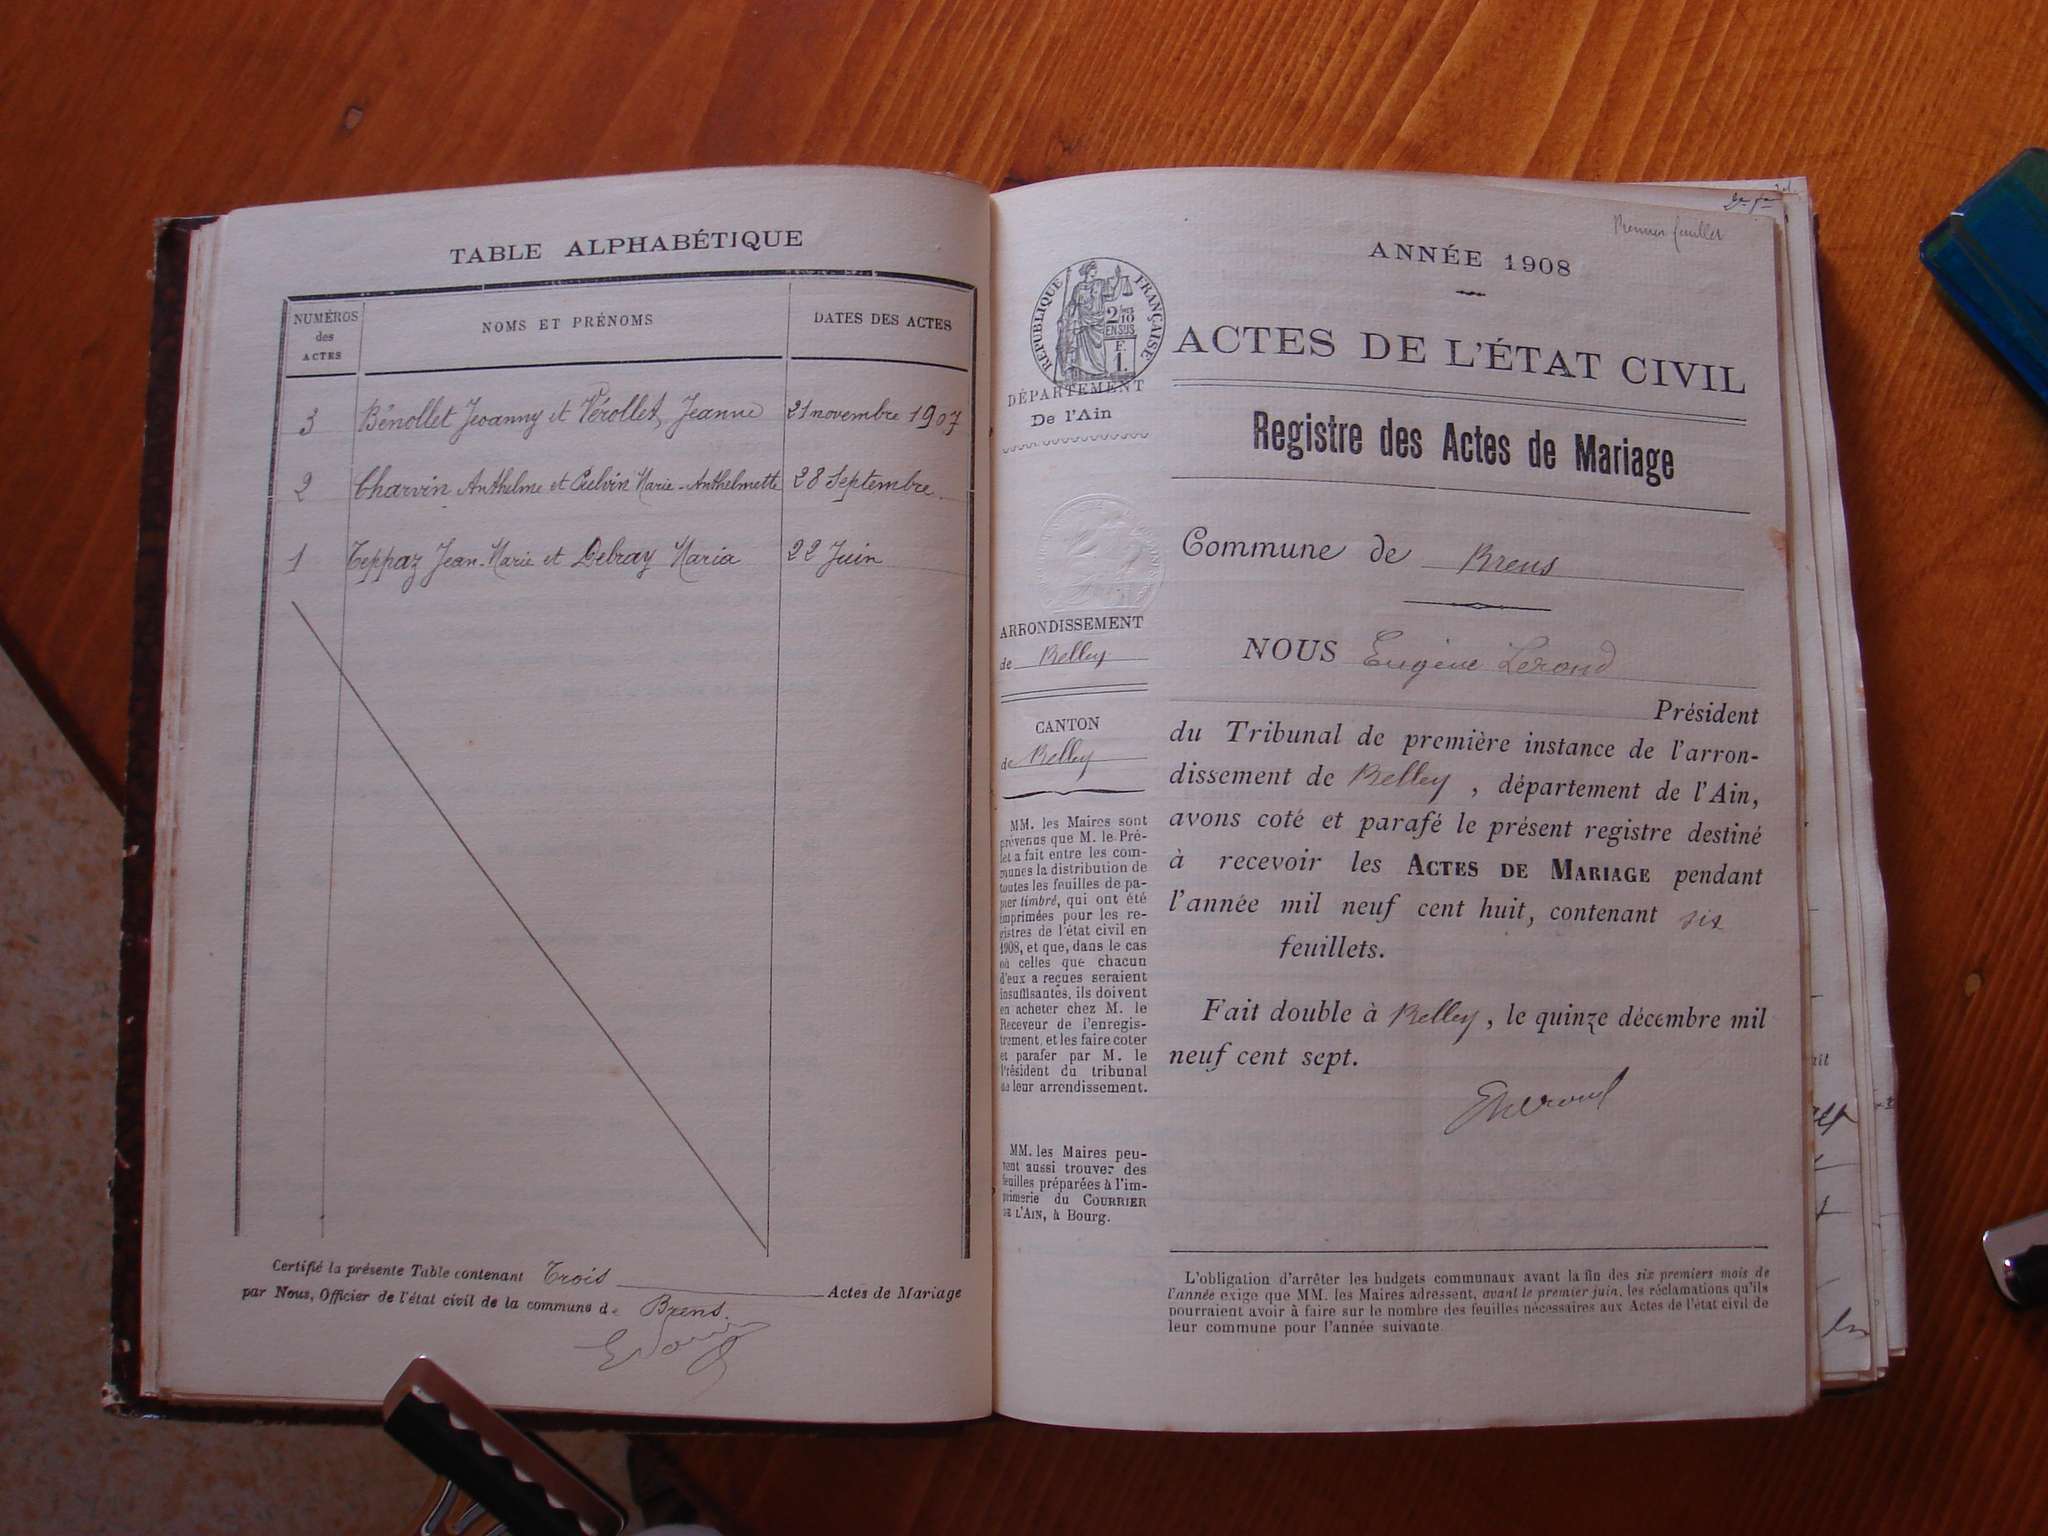 TABLE ALPHABÉTIQUE
NUMÉROS des ACTES
NOMS ET PRÉNOMS
DATES DES ACTES
3 Bénollet Jeoanny et Vérollet Jeanne 21 novembre 1907
2 Charvin Anthelme et Marie-Anthelmette 28 Septembre.
1 Teppaz Jean-Marie et Delray Maria 22 Juin
Certifié la présente Table contenant Trois Actes de Mariage
par Nous, Officier de l'état civil de la commune de Brens.
Premier feuillet
ANNÉE 1908
RÉPUBLIQUE FRANÇAISE
2/10
EN SUS
F.
1.
ACTES DE L'ÉTAT CIVIL
DÉPARTEMENT
De l'Ain
Registre des Actes de Mariage
Commune de Brens
ARRONDISSEMENT
de Belley
CANTON
de Belley
MM. les Maires sont
prévenus que M. le Pré-
fet a fait entre les com-
munes la distribution de
toutes les feuilles de pa-
pier timbré, qui ont été
imprimées pour les re-
gistres de l'état civil en
1908, et que, dans le cas
où celles que chacun
d'eux a reçues seraient
insuffisantes, ils doivent
en acheter chez M. le
Receveur de l'enregis-
trement, et les faire coter
et parafer par M. le
Président du tribunal
de leur arrondissement.
MM. les Maires peu-
vent aussi trouver des
feuilles préparées à l'im-
primerie du COURRIER
DE L'AIN, à Bourg.
NOUS Eugène Lerond
Président
du Tribunal de première instance de l'arron-
dissement de Belley, département de l'Ain,
avons coté et parafé le présent registre destiné
à recevoir les ACTES DE MARIAGE pendant
l'année mil neuf cent huit, contenant six
feuillets.
Fait double à Belley, le quinze décembre mil
neuf cent sept.
L'obligation d'arrêter les budgets communaux avant la fin des six premiers mois de
l'année exige que MM. les Maires adressent, avant le premier juin, les réclamations qu'ils
pourraient avoir à faire sur le nombre des feuilles nécessaires aux Actes de l'état civil de
leur commune pour l'année suivante.